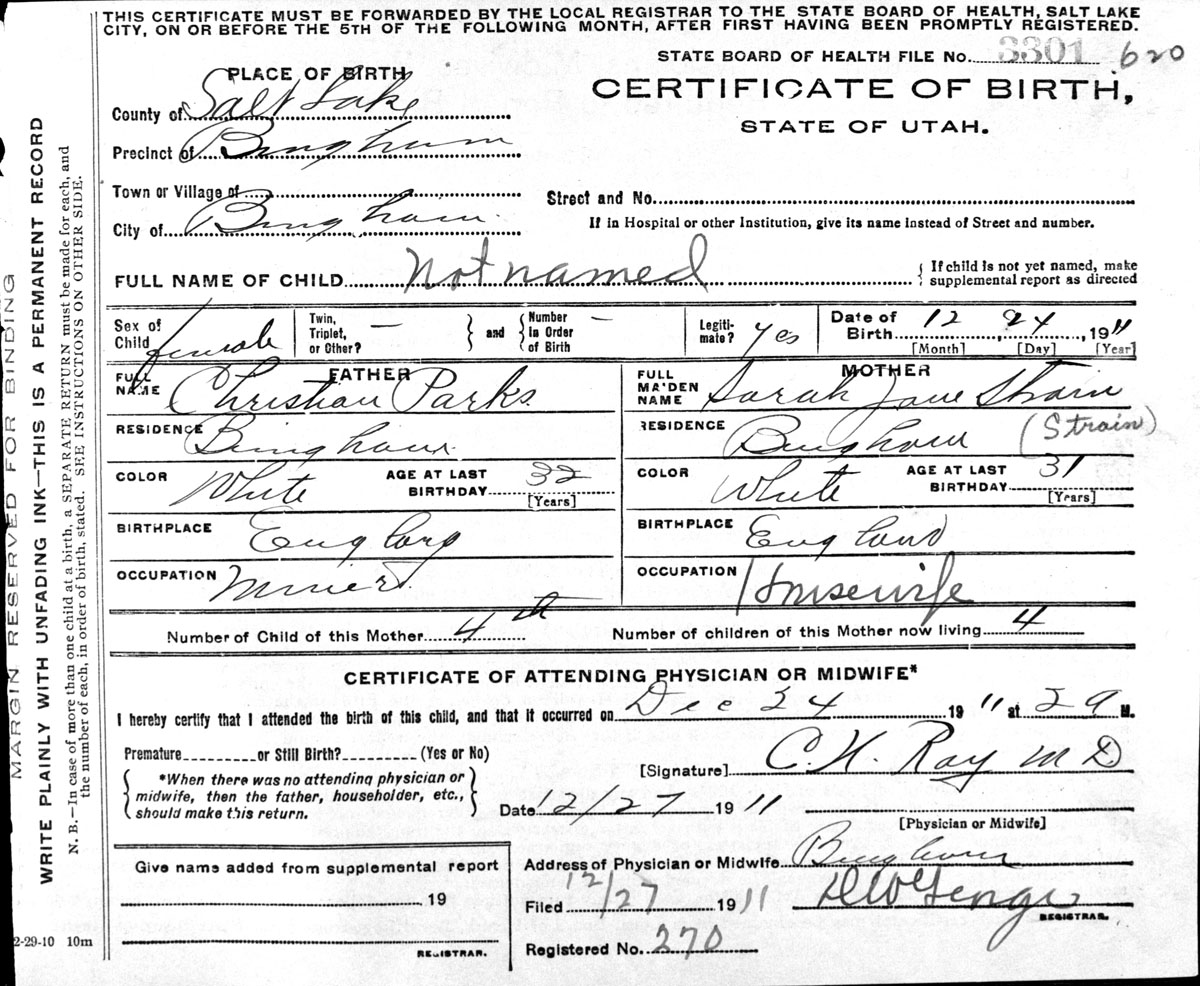 THIS CERTIFICATE MUST BE FORWARDED BY THE LOCAL REGISTRAR TO THE STATE BOARD OF HEALTH, SALT LAKE
CITY, ON OR BEFORE THE 5TH OF THE FOLLOWING MONTH, AFTER FIRST HAVING BEEN PROMPTLY REGISTERED.
STATE BOARD OF HEALTH FILE No. 3301 620
PLACE OF BIRTH
CERTIFICATE OF BIRTH,
STATE OF UTAH.
County of Salt Lake
Precinct of Bingham
Town or Village of
Street and No.
City of Bingham
If in Hospital or other Institution, give its name instead of Street and number.
FULL NAME OF CHILD Not named
{ If child is not yet named, make
supplemental report as directed
Sex of Child female
Twin, Triplet, or Other? —
and
Number in Order of Birth —
Legiti-mate? yes
Date of Birth 12 24, 1911
[Month] [Day] [Year]
FATHER
FULL NAME Christian Parks
RESIDENCE Bingham
COLOR White
AGE AT LAST BIRTHDAY 32
[Years]
BIRTHPLACE England
OCCUPATION Miner
MOTHER
FULL MAIDEN NAME Sarah Jane Strain
RESIDENCE Bingham (Strain)
COLOR White
AGE AT LAST BIRTHDAY 31
[Years]
BIRTHPLACE England
OCCUPATION Housewife
Number of Child of this Mother 4th
Number of children of this Mother now living 4
CERTIFICATE OF ATTENDING PHYSICIAN OR MIDWIFE*
I hereby certify that I attended the birth of this child, and that it occurred on Dec 24 1911 at 2 a M.
Premature or Still Birth? (Yes or No)
*When there was no attending physician or
midwife, then the father, householder, etc.,
should make this return.
[Signature] C. H. Ray M D
Date 12/27 1911
[Physician or Midwife]
Give name added from supplemental report
19
REGISTRAR.
Address of Physician or Midwife Bingham
Filed 12/27 1911
REGISTRAR.
Registered No. 270
MARGIN RESERVED FOR BINDING
WRITE PLAINLY WITH UNFADING INK—THIS IS A PERMANENT RECORD
N. B.—In case of more than one child at a birth, a SEPARATE RETURN must be made for each, and
the number of each, in order of birth, stated. SEE INSTRUCTIONS ON OTHER SIDE.
2-29-10 10m